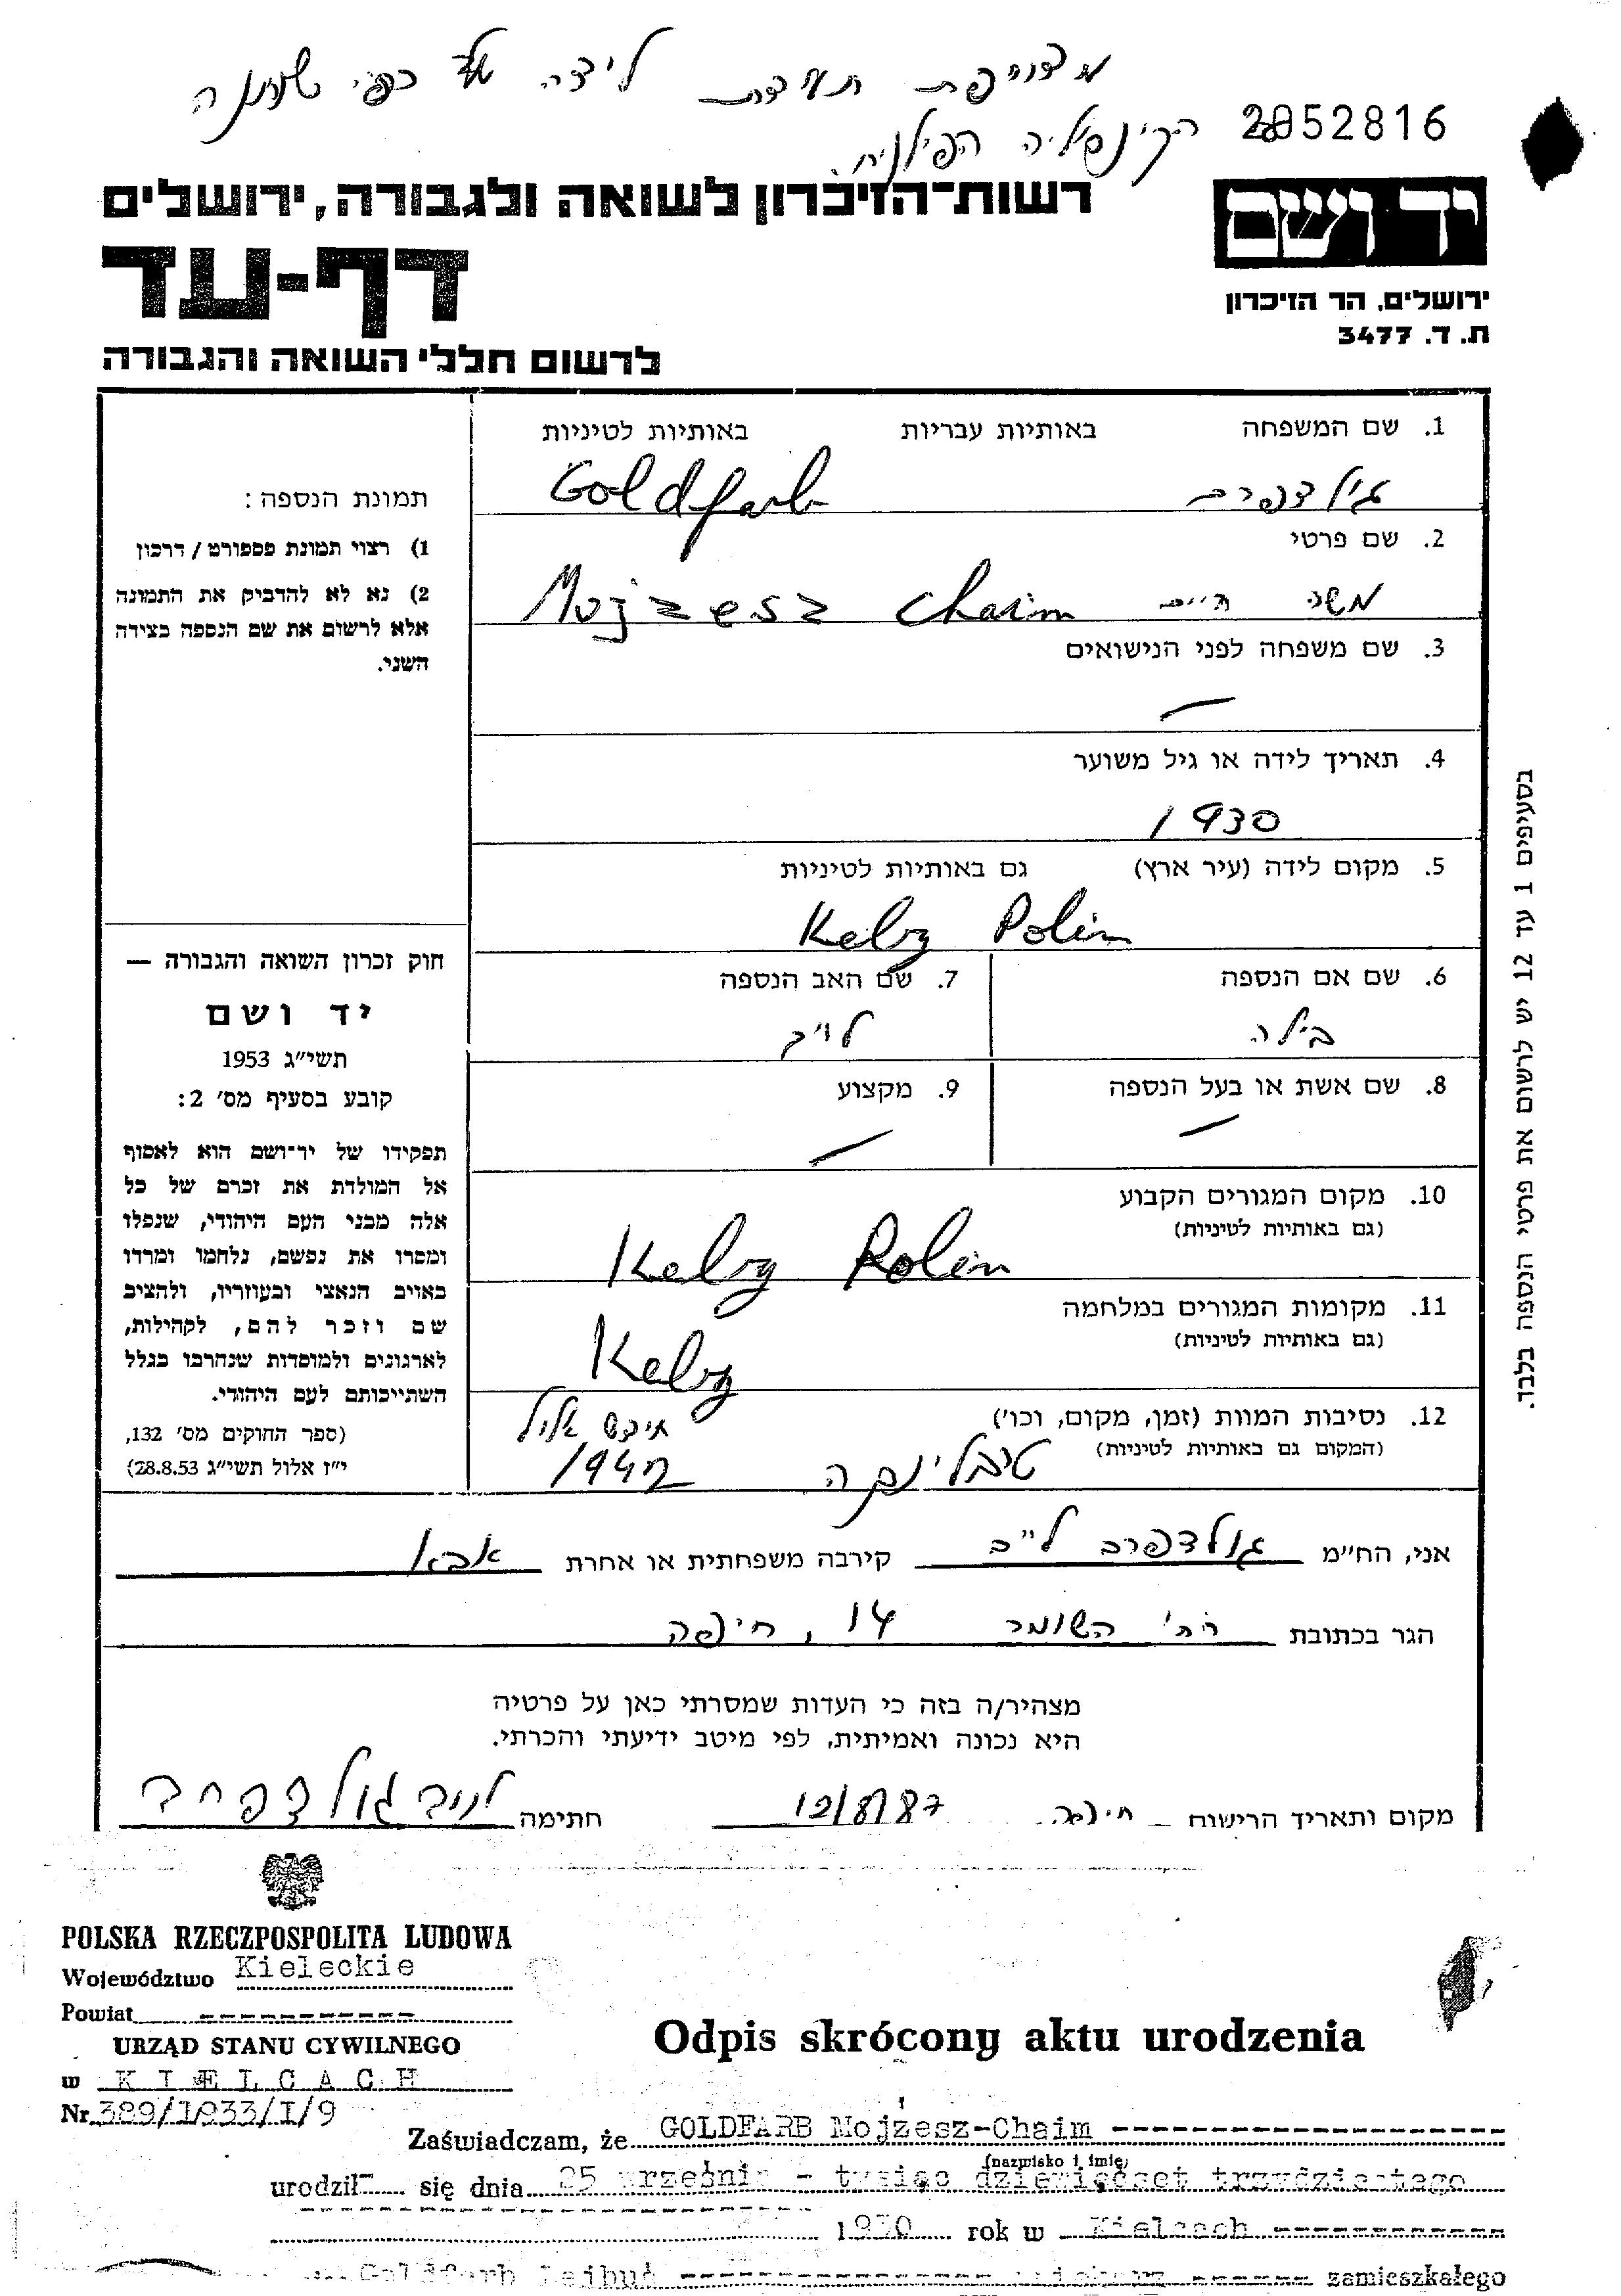 מצורפת תעודת לידה על כפי שנתנה
2052816
רשות־הזיכרון לשואה ולגבורה, ירושלים
יד ושם
דף-עד
ירושלים, הר הזיכרון
ת. ד. 3477
לרשום חללי השואה והגבורה
1. שם המשפחה באותיות עבריות באותיות לטיניות
גולדפרב Goldfarb
2. שם פרטי
משה חיים Mojzesz Chaim
3. שם משפחה לפני הנישואים
—
4. תאריך לידה או גיל משוער
1930
5. מקום לידה (עיר ארץ) גם באותיות לטיניות
Kelzy Polin
6. שם אם הנספה
7. שם האב הנספה
בילה
לייב
8. שם אשת או בעל הנספה
9. מקצוע
—
—
10. מקום המגורים הקבוע
(גם באותיות לטיניות)
Kelzy Polin
11. מקומות המגורים במלחמה
(גם באותיות לטיניות)
Kelzy
12. נסיבות המוות (זמן, מקום, וכו')
(המקום גם באותיות לטיניות)
טרבלינקה
חודש אלול
1942
תמונת הנספה:
1) רצוי תמונת פספורט / דרכון
2) נא לא להדביק את התמונה
אלא לרשום את שם הנספה בצידה
השני.
חוק זכרון השואה והגבורה —
יד ושם
תשי״ג 1953
קובע בסעיף מס׳ 2:
תפקידו של יד־ושם הוא לאסוף
אל המולדת את זכרם של כל
אלה מבני העם היהודי, שנפלו
ומסרו את נפשם, נלחמו ומרדו
באויב הנאצי ובעוזריו, ולהציב
שם וזכר להם, לקהילות,
לארגונים ולמוסדות שנחרבו בגלל
השתייכותם לעם היהודי.
(ספר החוקים מס׳ 132,
י״ז אלול תשי״ג 28.8.53)
בסעיפים 1 עד 12 יש לרשום את פרטי הנספה בלבד.
אני, הח״מ גולדפרב לייב קירבה משפחתית או אחרת אבא
הגר בכתובת רח' השומר 14, חיפה
מצהיר/ה בזה כי העדות שמסרתי כאן על פרטיה
היא נכונה ואמיתית, לפי מיטב ידיעתי והכרתי.
מקום ותאריך הרישום חיפה 12/8/87 חתימה לייב גולדפרב
POLSKA RZECZPOSPOLITA LUDOWA
Województwo Kieleckie
Powiat
URZĄD STANU CYWILNEGO
w KIELCACH
Nr 389/1933/I/9
Odpis skrócony aktu urodzenia
Zaświadczam, że GOLDFARB Mojżesz-Chaim
(nazwisko i imię)
urodził się dnia 25 września - tysiąc dziewięćset trzydziestego
1930 rok w Kielcach
Goldfarb Lejbuś zamieszkałego